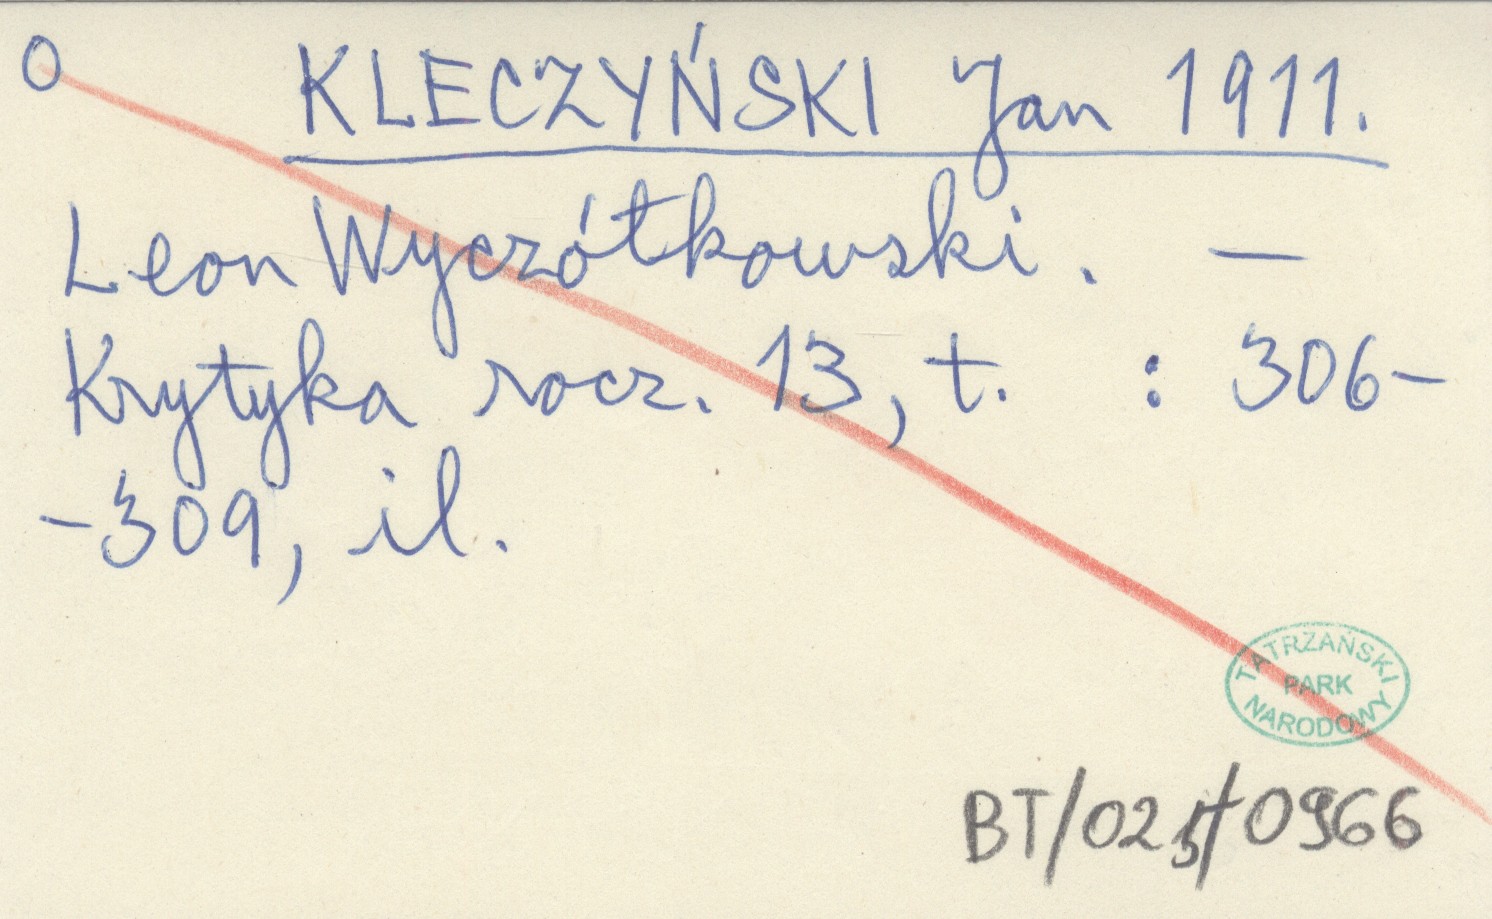 O
KLECZYŃSKI Jan 1911.
Leon Wyczółkowski. —
Krytyka rocz. 13, t.   : 306-
-309, il.
TATRZAŃSKI
PARK
NARODOWY
BT/025/0966